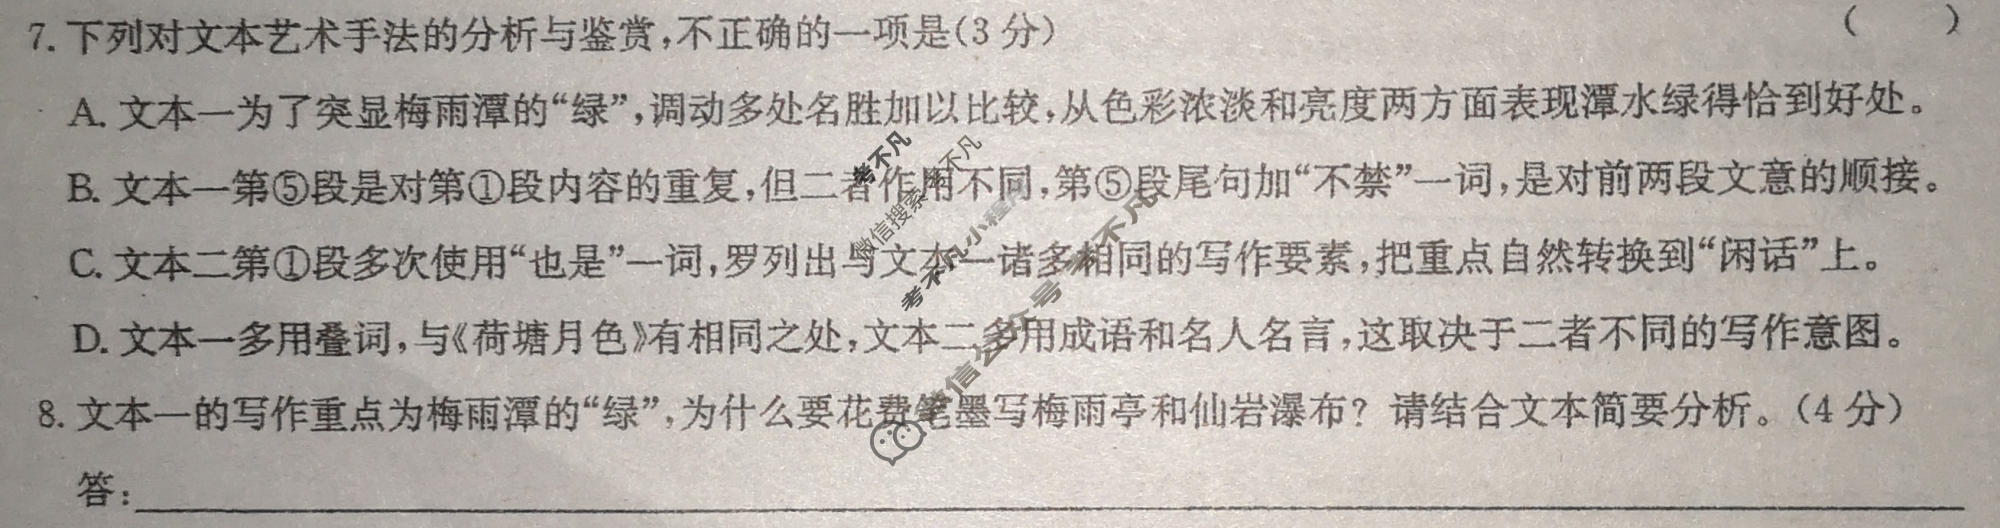 7. 下列对文本艺术手法的分析与鉴赏,不正确的一项是(3分) (  )
A. 文本一为了突显梅雨潭的“绿”,调动多处名胜加以比较,从色彩浓淡和亮度两方面表现潭水绿得恰到好处。
B. 文本一第⑤段是对第①段内容的重复,但二者作用不同,第⑤段尾句加“不禁”一词,是对前两段文意的顺接。
C. 文本二第①段多次使用“也是”一词,罗列出与文本一诸多相同的写作要素,把重点自然转换到“闲话”上。
D. 文本一多用叠词,与《荷塘月色》有相同之处,文本二多用成语和名人名言,这取决于二者不同的写作意图。
8. 文本一的写作重点为梅雨潭的“绿”,为什么要花费笔墨写梅雨亭和仙岩瀑布? 请结合文本简要分析。(4分)
答:
考不凡
微信搜索考不凡
考不凡小程序
微信公众号 考不凡